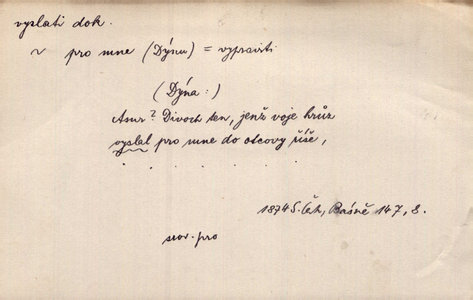 vyslati dok.
~ pro mne (Dýnu) = vypraviti
(Dýna:)
Asur? Divoch ten, jenž voje hrůz
vyslal pro mne do otcovy říše,
. . . . . .
1874 S. Čch, Básně 147, 8.
srov. pro